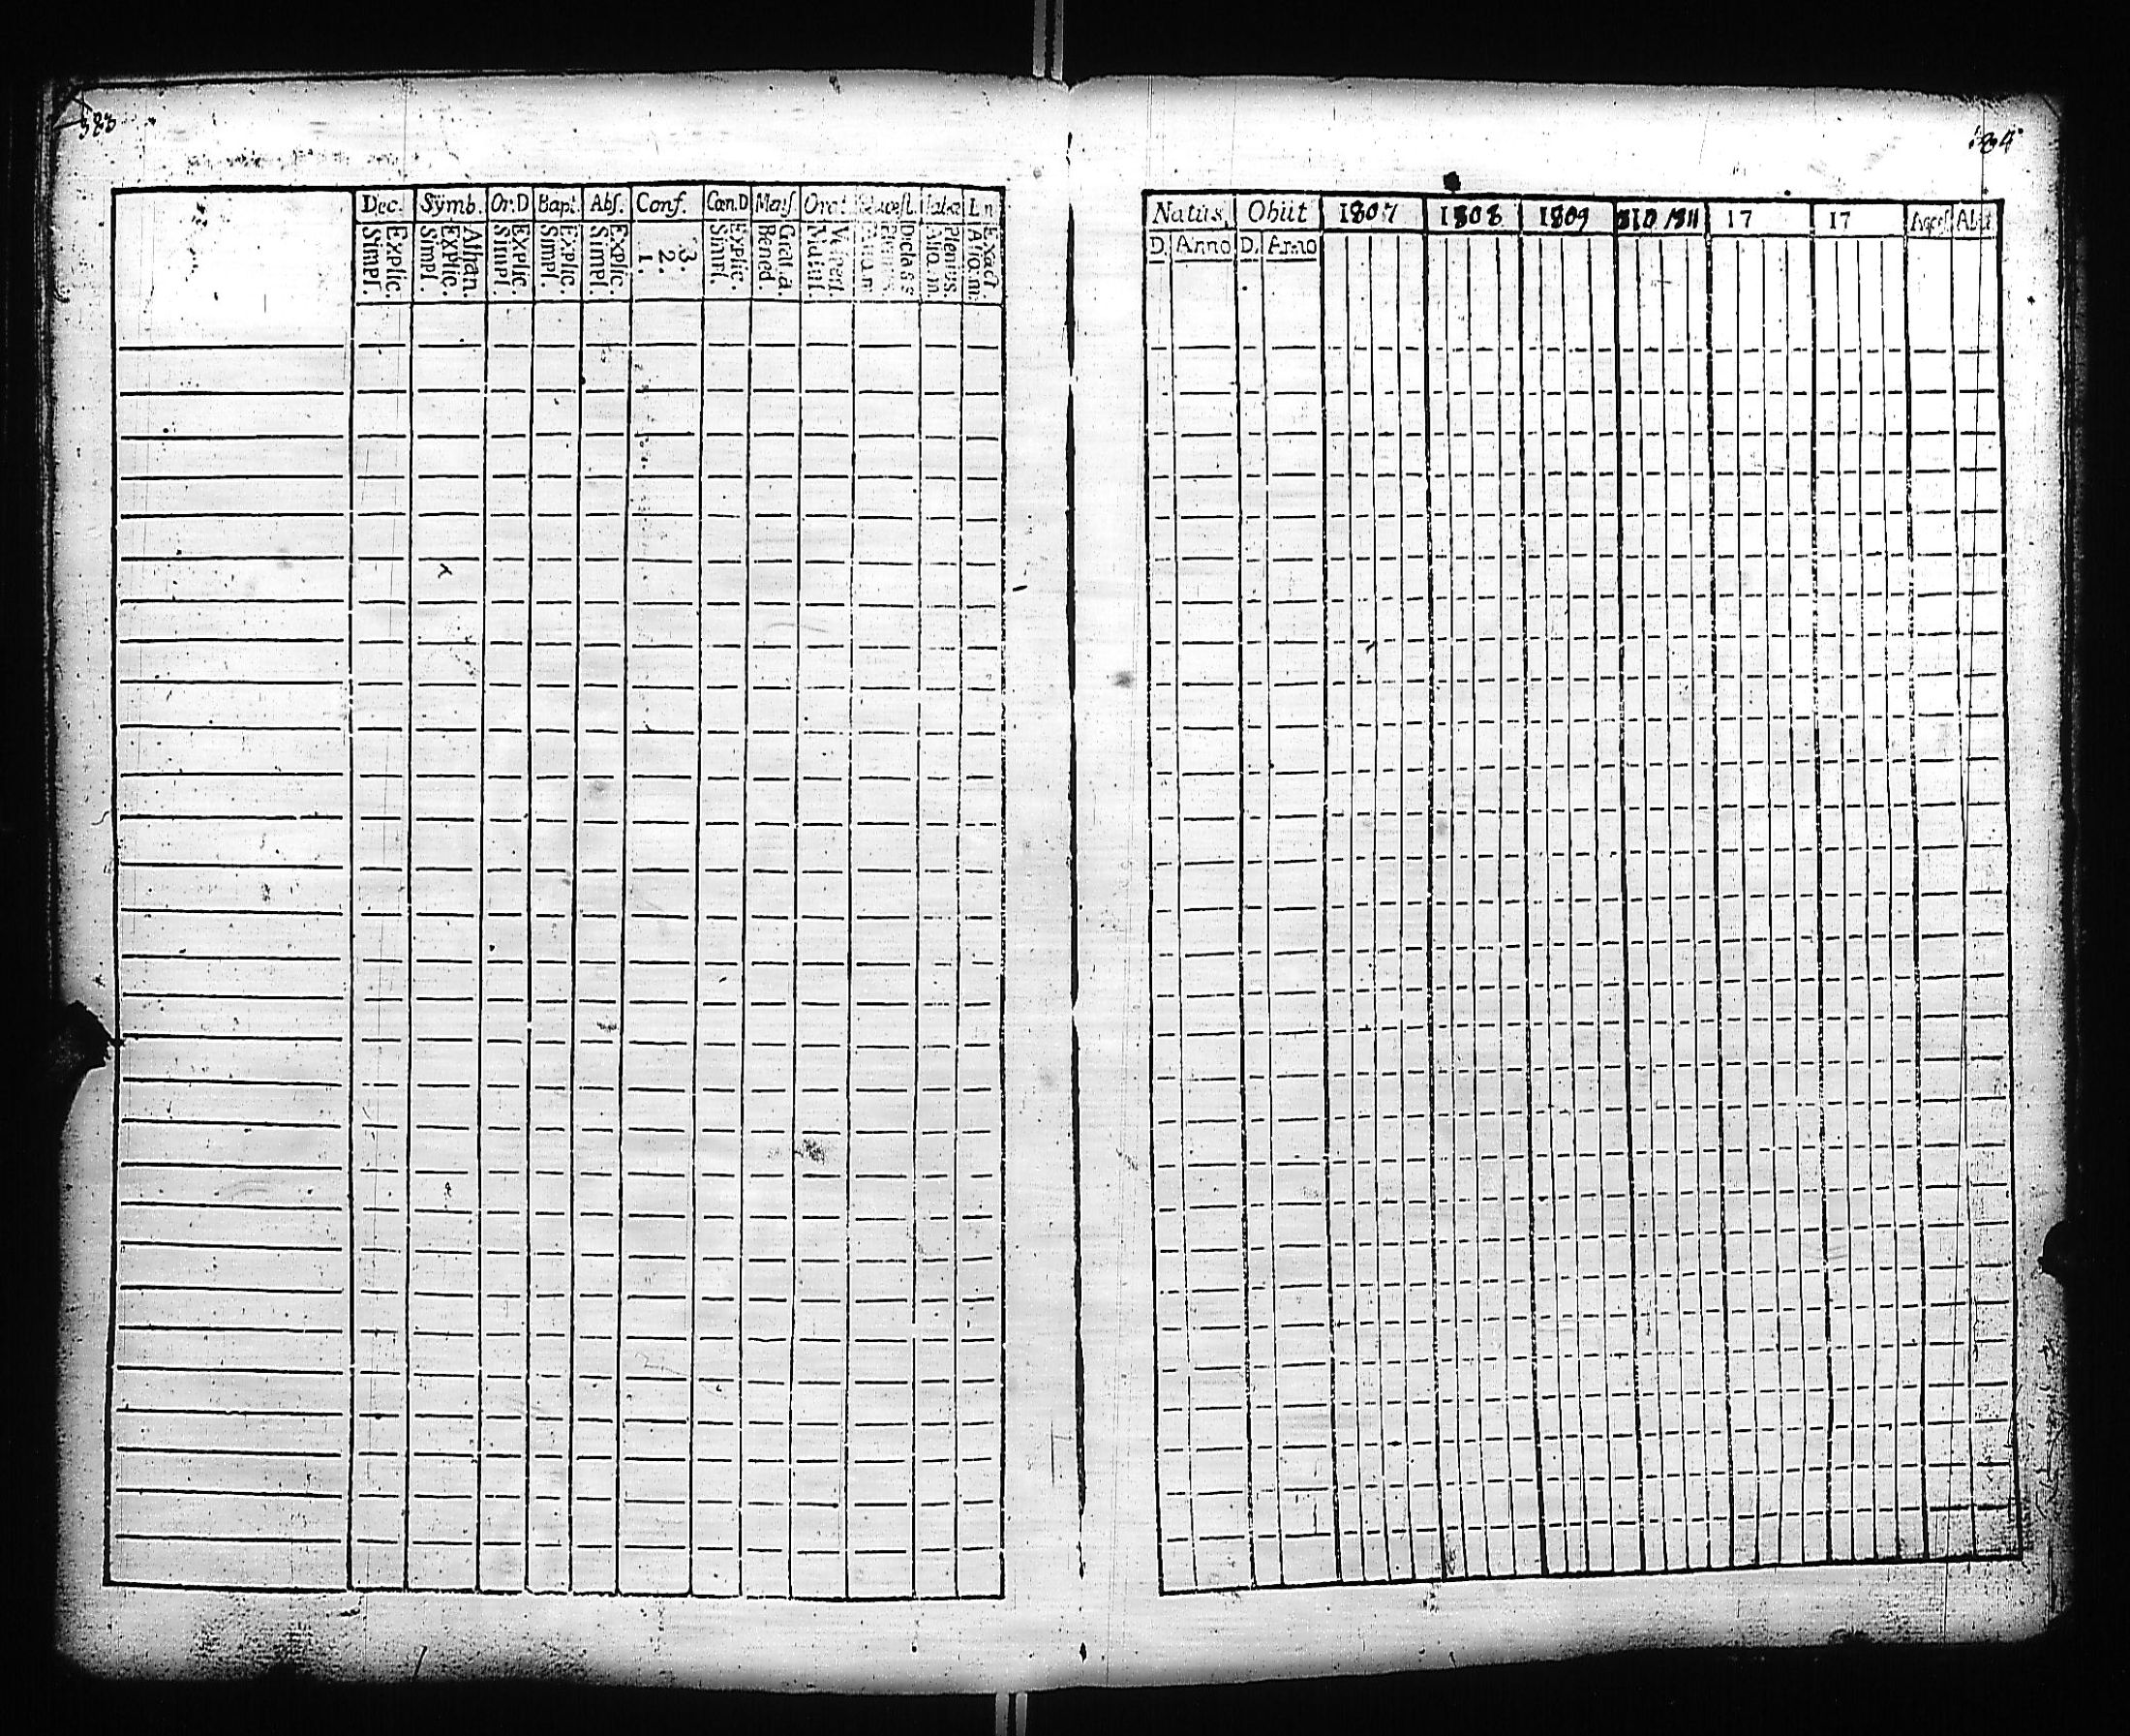 383
384
Dec. Sÿmb. Or.D Bapt. Abſ. Conf. Cœn.D Menſ Orat.
Simpl. Explic. Simpl. Explic. Athan. Simpl. Explic. Simpl. Explic. Simpl. Explic. 1. 2. 3. Simpl. Explic. Bened. Matut. Veſpert. Aliq.m. Pleniüs. Aliq.m. Exact.
Natüs Obiit 1807 1808 1809 1810 1811 17 17 Acceſ. Abiit
D. Anno D. Anno